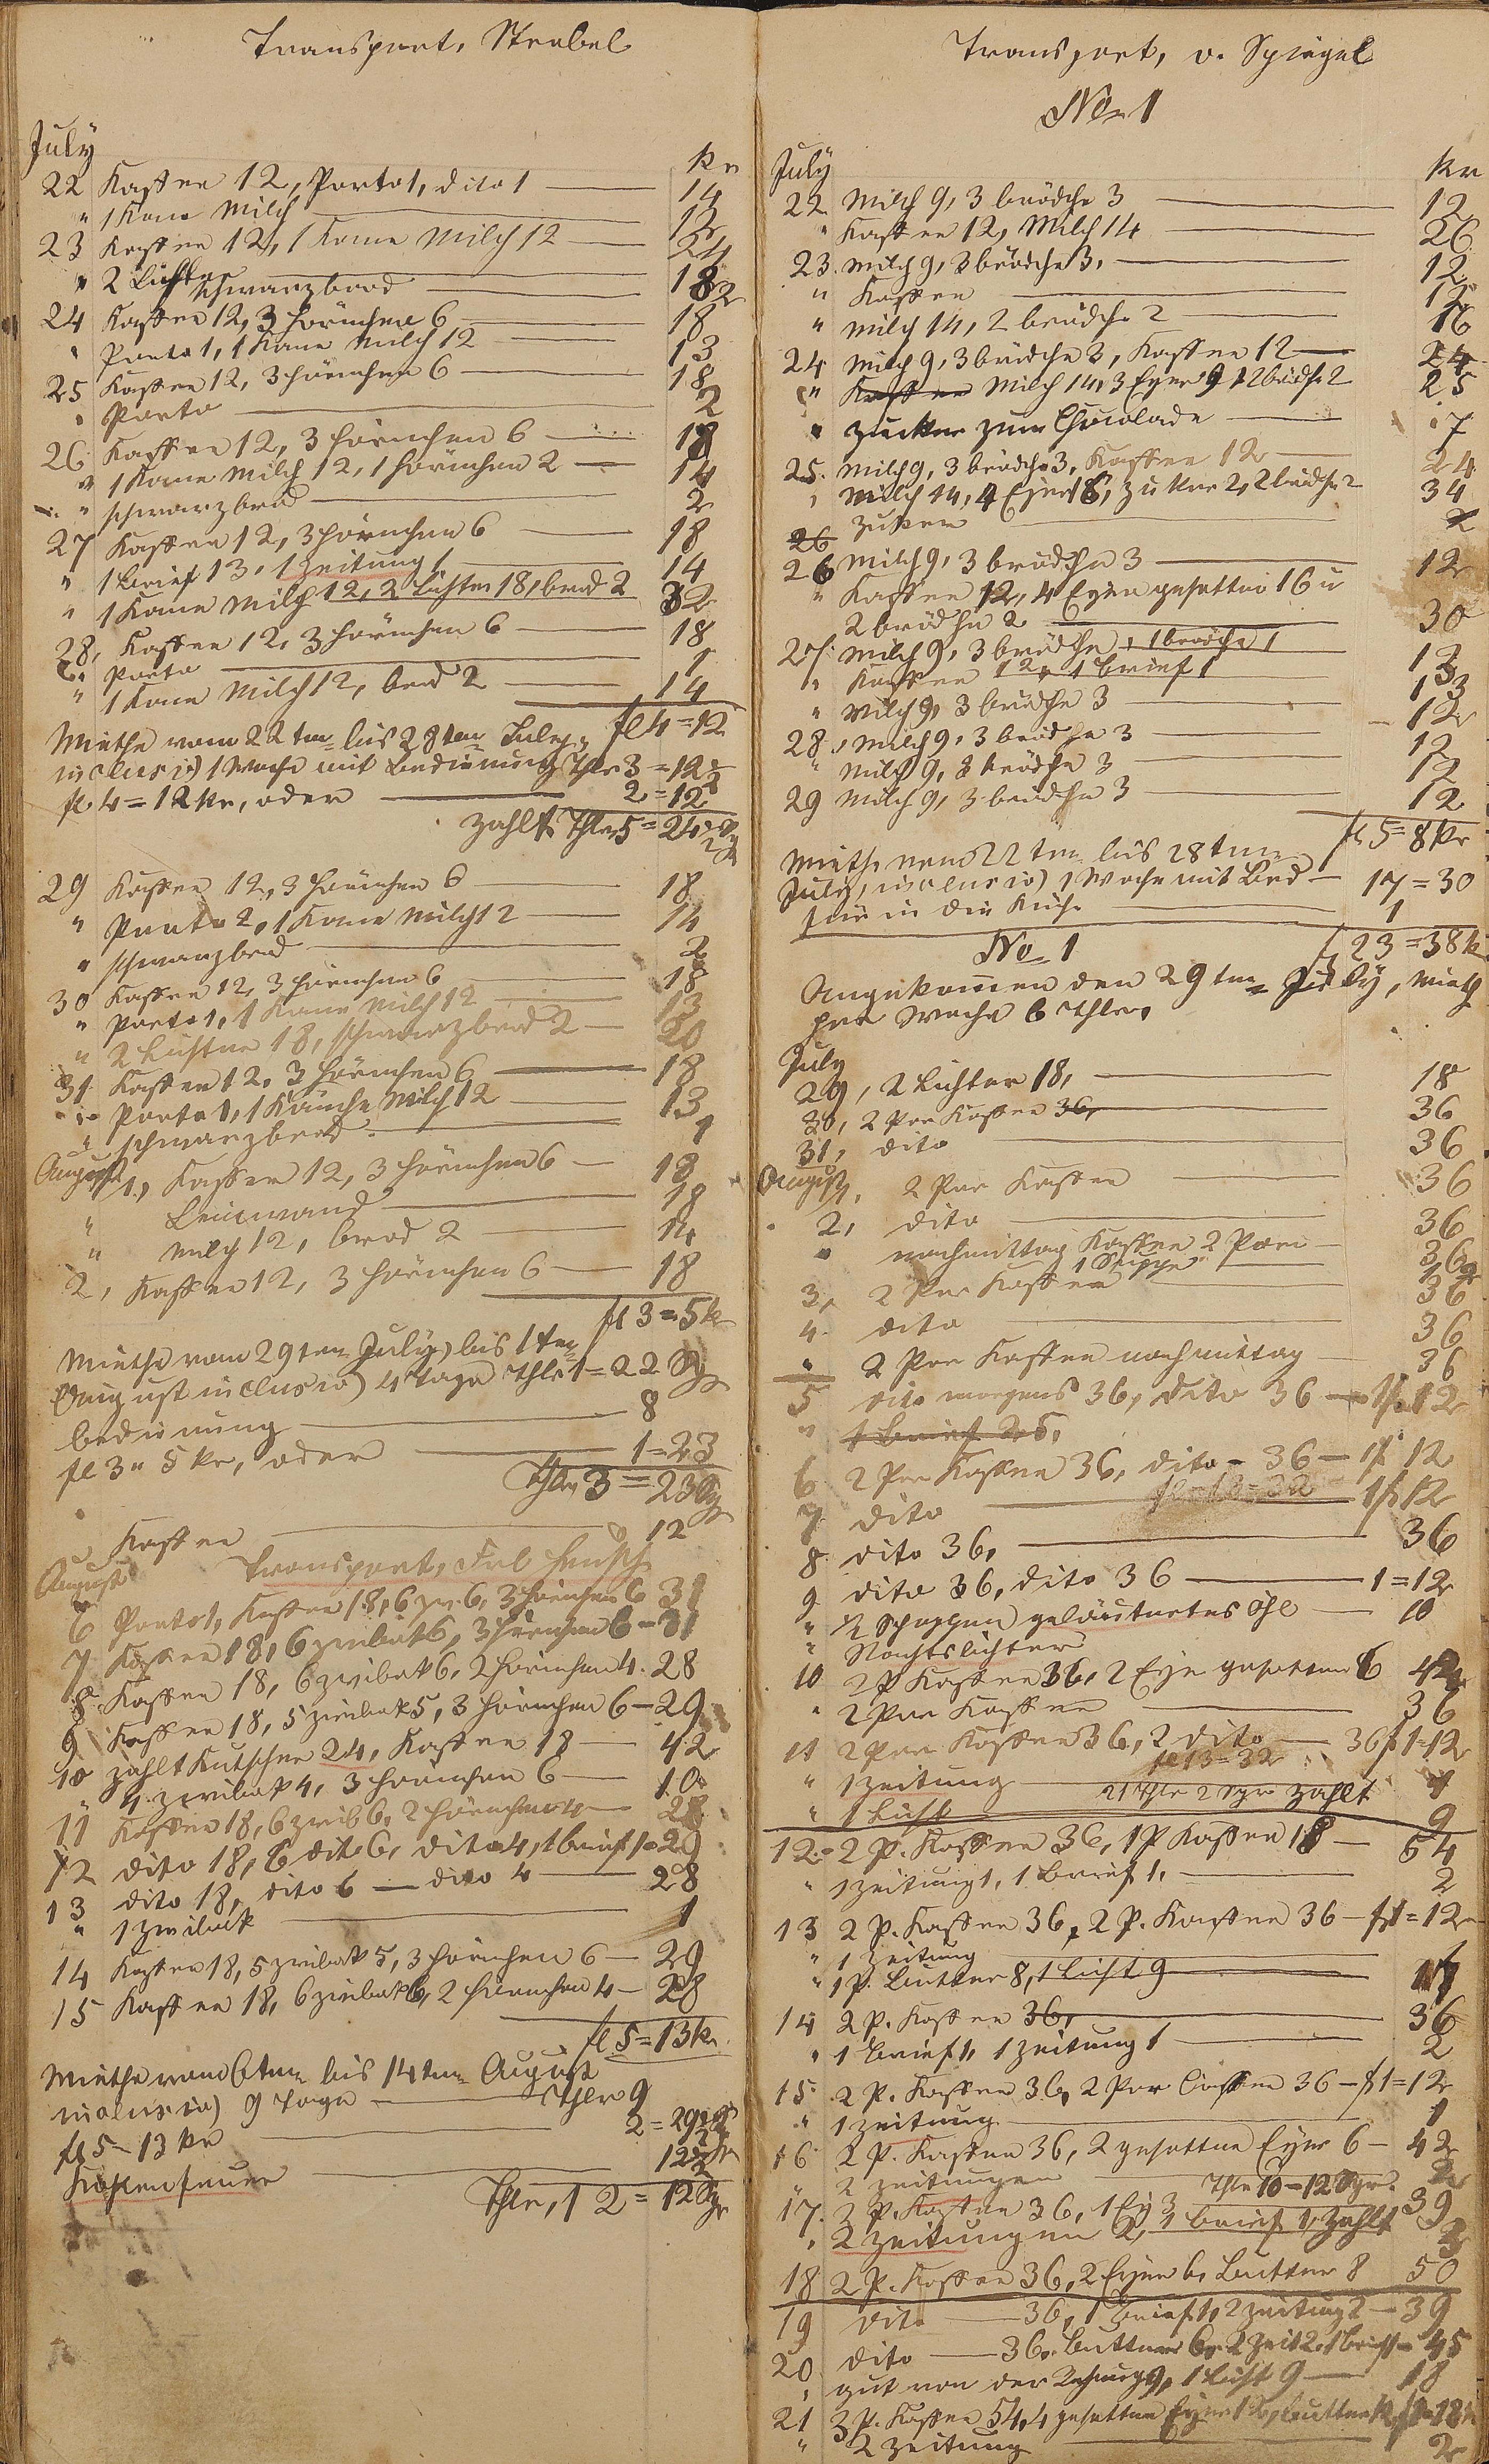 Transport, Strebel
July
Kr
22 Kaffee 12, Porto 1, dito 1 — 14
" 1 Kane Milch — 12
23 Kaffee 12, 1 Kane Milch 12 — 24
" 2 Licht — 18
schwarzbrod — 2
24 Kaffee 12, 3 hörnchen 6 — 18
" Porto 1, 1 Kane Milch 12 — 13
25 Kaffee 12, 3 hörnchen 6 — 18
" Porto — 2
26 Kaffee 12, 3 hörnchen 6 — 18
" 1 Kane Milch 12, 1 hörnchen 2 — 14
" schwarzbrod — 2
27 Kaffee 12, 3 hörnchen 6 — 18
" 1 Brief 13, 1 Zeitung 1 — 14
" 1 Kane Milch 12, 2 Lichter 18, brod 2 32
28, Kaffee 12, 3 hörnchen 6 — 18
" Porto — 1
" 1 Kane Milch 12, brod 2 — 14
fl 4 = 12
Miethe vom 22ten bis 28ten July
inclusiv) 1 Woche mit Bedienung Thlr 3 = 12
fl. 4 = 12 kr, oder — 2 = 12
zahlt Thlr 5 = 24
29 Kaffee 12, 3 hörnchen 6 — 18
" Porto 2, 1 Kane Milch 12 — 14
" schwarzbrod — 2
30 Kaffee 12, 3 hörnchen 6 — 18
" Porto 1, 1 Kane Milch 12 — 13
" 2 Lichter 18, schwarzbrod 2 — 20
31 Kaffee 12, 3 hörnchen 6 — 18
" Porto 1, 1 Kanche Milch 12 — 13
" schwarzbrod — 1
August
1, Kaffee 12, 3 hörnchen 6 — 18
" Leinwand — 18
" Milch 12, brod 2 — 14
2, Kaffee 12, 3 hörnchen 6 — 18
fl 3 = 5 k
Miethe vom 29ten July) bis 1ten
August inclusiv) 4 Tage Thlr 1 = 22 Sg
bedienung — 8
fl 3 " 5 kr, oder — 1 = 23
Thlr 3 = 23 Sg
Kaffee — 12
August
Transport, Frl
6 Porto 1, Kaffee 18, 6 zw 6, 3 hörnchen 6 31
7 Kaffee 18, 6 zwibak 6, 3 hörnchen 6 — 31
8 Kaffee 18, 6 zwibak 6, 2 hörnchen 4. 28
9 Kaffee 18, 5 zwibak 5, 3 hörnchen 6 — 29
10 zahlt Kutscher 24, Kaffee 18 — 42
" 4 zwibak 4, 3 hörnchen 6 — 10
11 Kaffee 18, 6 zwib 6, 2 hörnchen 4 — 28
12 dito 18, 6 dito 6, dito 4, 1 brief 1 = 29
13 dito 18, dito 6 — dito 4 — 28
" 1 zwibak — 1
14 Kaffee 18, 5 zwibak 5, 3 hörnchen 6 — 29
15 Kaffee 18, 6 zwibak 6, 2 hörnchen 4 — 28
fl 5 = 13 k
Miethe vom 6ten bis 14ten August
inclusiv) 9 Tage — Thlr 9
fl 5 — 13 kr — 2 = 29
Kohlenfeuer — 12
Thlr, 12 = 12 Sgr
Transport, v. Spiegel
No 1
July
Kr
22 Milch 9, 3 brödche 3 — 12
" Kaffee 12, Milch 14 — 26
23. Milch 9, 3 brödche 3, — 12
" Kaffee — 12
" Milch 14, 2 brödche 2 — 16
24 Milch 9, 3 brödche 3, Kaffee 12 — 24
" Kaffee Milch 14, 3 Eyer 9, 2 brödche 2 25
" Zucker zum Chocolade — 7
25. Milch 9, 3 brödche 3, Kaffee 12 — 24
" Milch 14, 4 Eyer 16, Zucker 2, 2 brödche 2 34
26 Zucker — 2
26 Milch 9, 3 brödche 3 — 12
" Kaffee 12, 4 Eyer gesotten 16 u
2 brödche 2 — 30
27. Milch 9, 3 brödche, 1 brödche 1 — 13
" Kaffee 12, 1 brief 1 — 13
" Milch 9, 3 brödche 3 — 12
28, Milch 9, 3 brödche 3 — 12
" Milch 9, 3 brödche 3 — 12
29 Milch 9, 3 brödche 3 — 12
fl 5 = 8 kr
Miethe vom 22ten bis 28ten
July, inclusiv) 1 Woche mit Bed — 17 = 30
für in die Küche — 1
No 1 fl 23 = 38 k
Angekomen den 29ten July, Mieth
per Woche 6 Thlr,
July
29, 2 Lichter 18, — 18
30, 2 Por Kaffee 36, — 36
31, dito — 36
August
1, 2 Por Kaffee — 36
2, dito — 36
" nachmittag Kaffee 2 Por — 36
1 Suppe — 9
3, 2 Por Kaffee — 36
4. dito — 36
" 2 Por Kaffee nachmittag — 36
5 dito morgens 36, dito 36 — 1 fl 12
" 1 Brief 25,
6 2 Por Kaffee 36, dito — 36 — 1 fl 12
7 dito — 1 fl 12
8 dito 36, — 36
9 dito 36, dito 36 — 1 = 12
" ½ Schoppen geläutertes Öhl — 10
" Nachtslichter
10 2 P Kaffee 36, 2 Eyer gesotten 6 42
" 2 Por Kaffee — 36
11 2 Por Kaffee 36, 2 dito — 36 fl 1 = 12
fl 13 = 32
" 1 Zeitung — 1
21 Thlr 2 Sgr zahlt
" 1 Licht — 9
12 — 2 P. Kaffee 36, 1 P Kaffee 18 — 54
" 1 Zeitung 1, 1 Brief 1, — 2
13 2 P. Kaffee 36, 2 P. Kaffee 36 — fl 1 = 12
" 1 Zeitung — 1
" 1 P. Butter 8, 1 Licht 9 — 17
14 2 P. Kaffee 36, — 36
" 1 Brief 1, 1 Zeitung 1 — 2
15 2 P. Kaffee 36, 2 Por Caffee 36 — fl 1 = 12
" 1 Zeitung — 1
16 2 P. Kaffee 36, 2 gesottne Eyer 6 — 42
" 2 Zeitungen — 2
Thlr 10 — 12 Sgr.
17. 2 P. Kaffee 36, 1 Ey 3 39
" 2 Zeitungen 2, 1 brief 1, zahlt 3
18 2 P. Kaffee 36, 2 Eyer 6, Butter 8 50
19 dito — 36, 1 Brief 1, 2 Zeitung 2 — 39
20 dito — 36, Butter 6, 2 Zeit 2, 1 brief — 45
" gut von der 9, 1 Licht 9 — 18
21 3 P. Kaffee 54, 4 gesottne Eyer 12, Butter 12, fl 1 = 18 k
" 2 Zeitung — 2